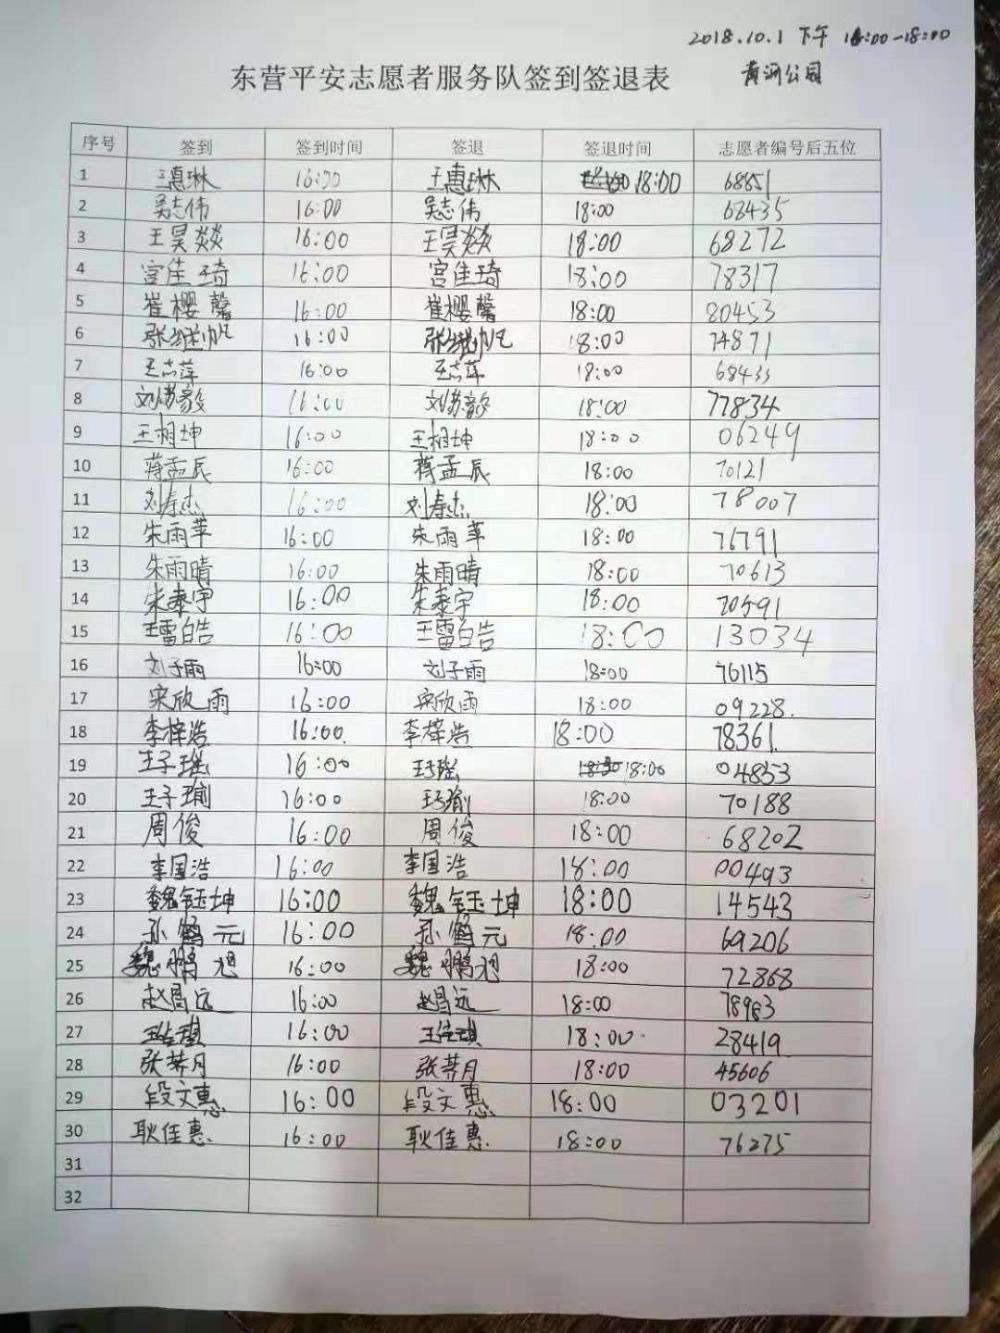 2018.10.1 下午 16:00-18:00
东营平安志愿者服务队签到签退表 黄河公园
序号 签到 签到时间 签退 签退时间 志愿者编号后五位
1 王惠琳 16:00 王惠琳 18:00 68851
2 吴志伟 16:00 吴志伟 18:00 68435
3 王昊燚 16:00 王昊燚 18:00 68272
4 宫佳琦 16:00 宫佳琦 18:00 78317
5 崔樱馨 16:00 崔樱馨 18:00 80453
6 张继帆 16:00 张继帆 18:00 74871
7 王志萍 16:00 王志萍 18:00 68433
8 刘苏毅 16:00 刘苏毅 18:00 77834
9 王相坤 16:00 王相坤 18:00 06249
10 蒋孟辰 16:00 蒋孟辰 18:00 70121
11 刘春杰 16:00 刘春杰 18:00 78007
12 朱雨苹 16:00 朱雨苹 18:00 76791
13 朱雨晴 16:00 朱雨晴 18:00 70613
14 朱泰宇 16:00 朱泰宇 18:00 70591
15 王雷皓 16:00 王雷皓 18:00 13034
16 刘子雨 16:00 刘子雨 18:00 76115
17 宋欣雨 16:00 宋欣雨 18:00 09228.
18 李梓浩 16:00. 李梓浩 18:00 78361.
19 王子瑶 16:00 王子瑶 18:00 04853
20 王子瑜 16:00 王子瑜 18:00 70188
21 周俊 16:00 周俊 18:00 68202
22 李国浩 16:00 李国浩 18:00 00493
23 魏钰坤 16:00 魏钰坤 18:00 14543
24 孙鹤元 16:00 孙鹤元 18:00 69206
25 魏鹏旭 16:00 魏鹏旭 18:00 72868
26 赵昌远 16:00 赵昌远 18:00 78983
27 16:00 18:00. 28419
28 张荠月 16:00 张荠月 18:00 45606
29 段文惠 16:00 段文惠 18:00 03201
30 耿佳惠 16:00 耿佳惠 18:00 76275
31
32